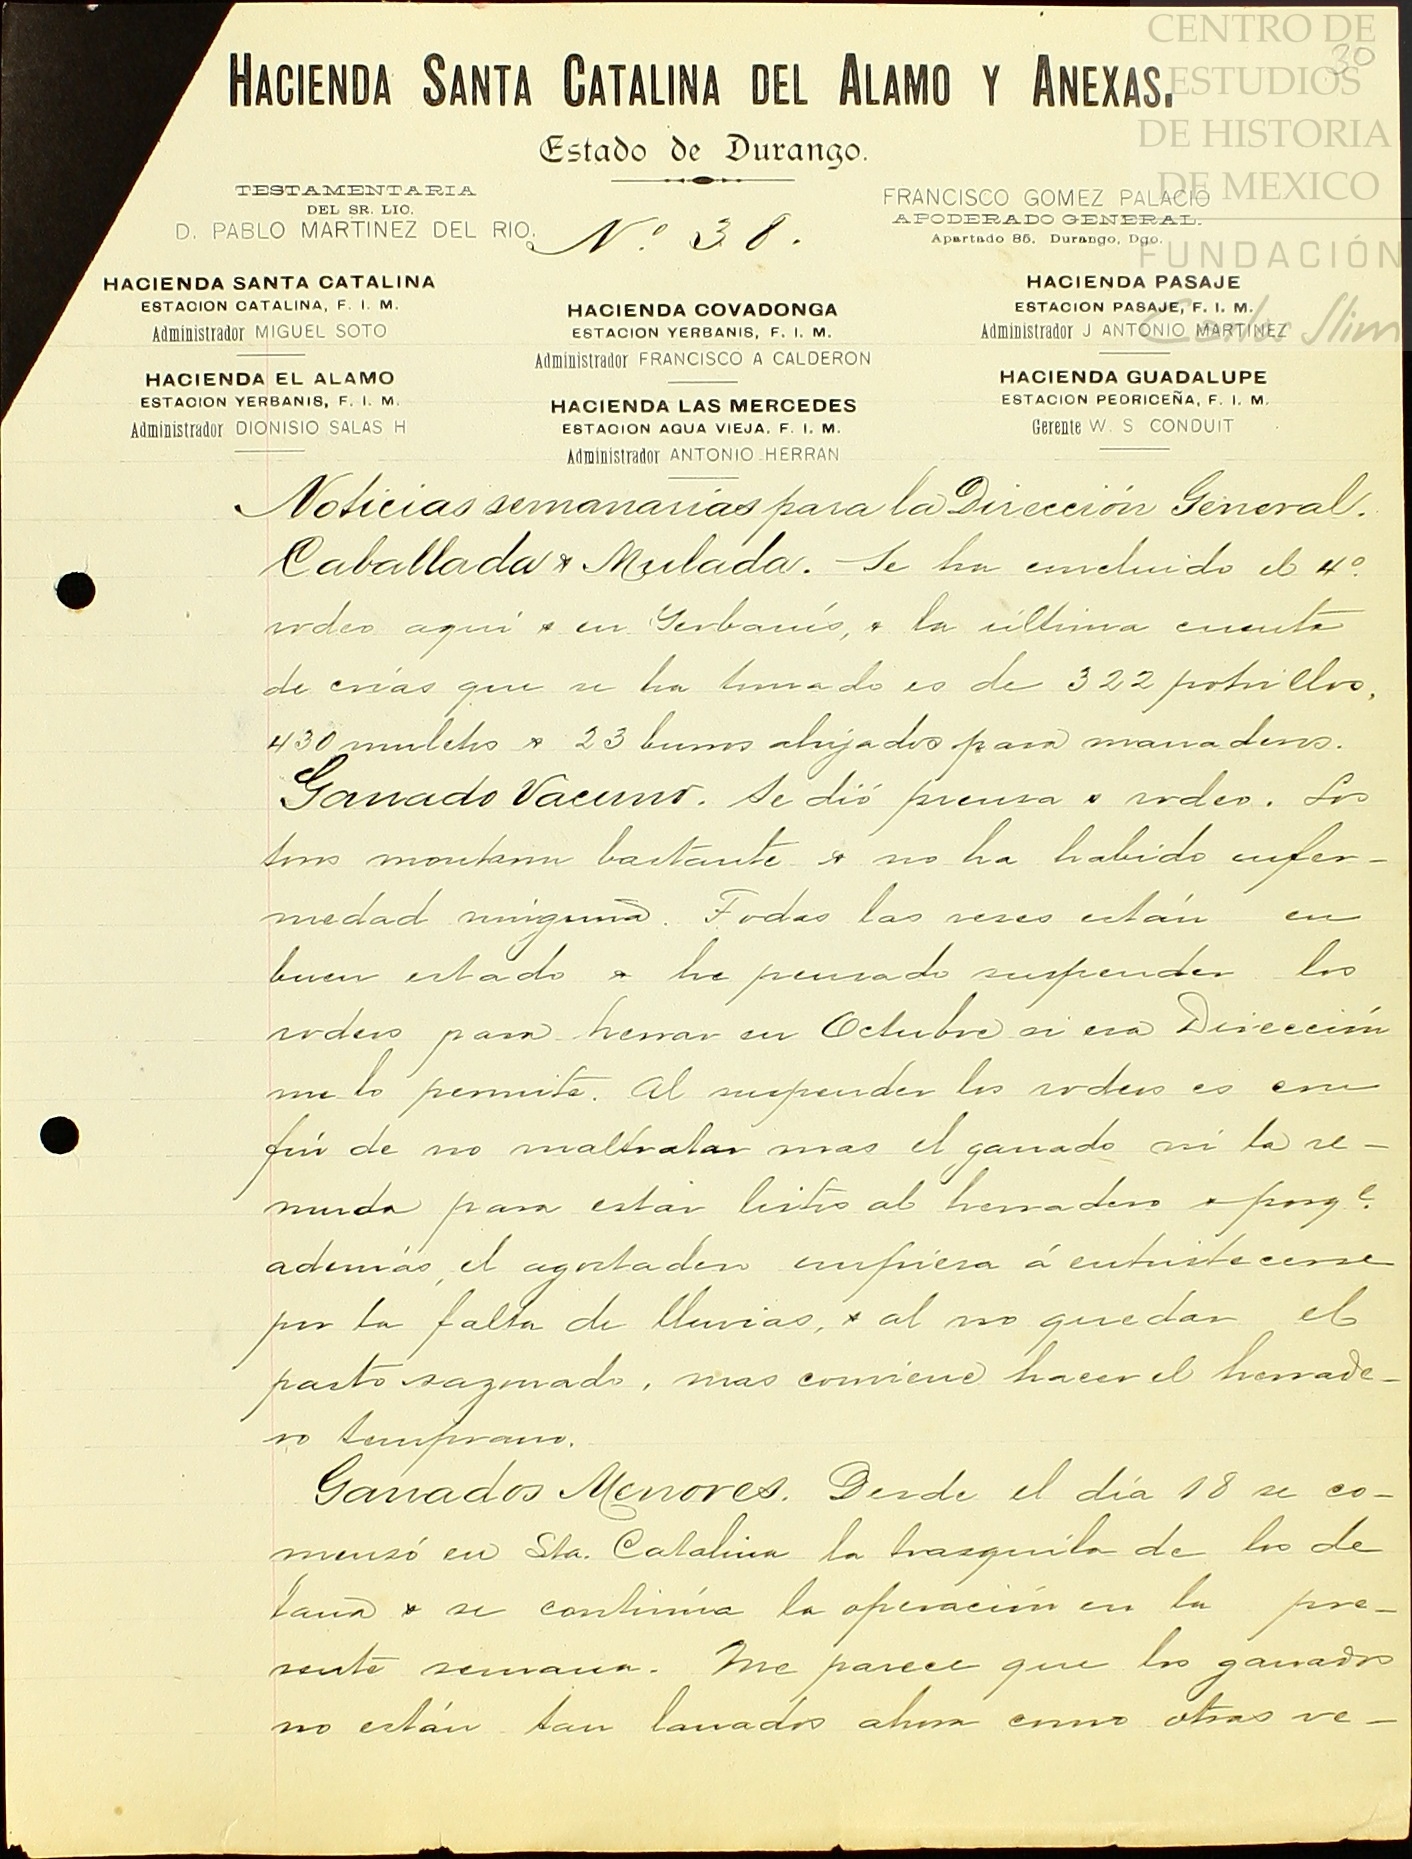 CENTRO DE
ESTUDIOS
DE HISTORIA
DE MEXICO
FUNDACIÓN
Carlos Slim
30
HACIENDA SANTA CATALINA DEL ALAMO Y ANEXAS.
Estado de Durango.
TESTAMENTARIA
DEL SR. LIC.
D. PABLO MARTINEZ DEL RIO.
Nº 38.
FRANCISCO GOMEZ PALACIO
APODERADO GENERAL.
Apartado 85. Durango, Dgo.
HACIENDA SANTA CATALINA
ESTACION CATALINA, F. I. M.
Administrador MIGUEL SOTO
HACIENDA EL ALAMO
ESTACION YERBANIS, F. I. M.
Administrador DIONISIO SALAS H
HACIENDA COVADONGA
ESTACION YERBANIS, F. I. M.
Administrador FRANCISCO A CALDERON
HACIENDA LAS MERCEDES
ESTACION AGUA VIEJA, F. I. M.
Administrador ANTONIO HERRAN
HACIENDA PASAJE
ESTACION PASAJE, F. I. M.
Administrador J ANTONIO MARTINEZ
HACIENDA GUADALUPE
ESTACION PEDRICEÑA, F. I. M.
Gerente W. S CONDUIT
Noticias semanarias para la Dirección General.
Caballada & Mulada. Se ha concluido el 4º
rodeo aquí & en Yerbanís, & la última cuenta
de crías que se ha tomado es de 322 potrillos,
430 muletos & 23 burros ahijados para manaderos.
Ganado Vacuno. Se dió prensa & rodeo. Los
toros montaron bastante & no ha habido enfer-
medad ninguna. Todas las reses están en
buen estado & he pensado suspender los
rodeos para herrar en Octubre si esa Dirección
me lo permite. Al suspender los rodeos es con
fin de no maltratar mas el ganado ni la re-
muda para estar listos al herradero & porqe.
además, el agostadero empieza á entristecerse
por la falta de lluvias, & al no quedar el
pasto sazonado, mas conviene hacer el herrade-
ro temprano.
Ganados Menores. Desde el día 18 se co-
mensó en Sta. Catalina la trasquila de los de
lana & se continúa la operación en la pre-
sente semana. Me parece que los ganados
no están tan lanados ahora como otras ve-